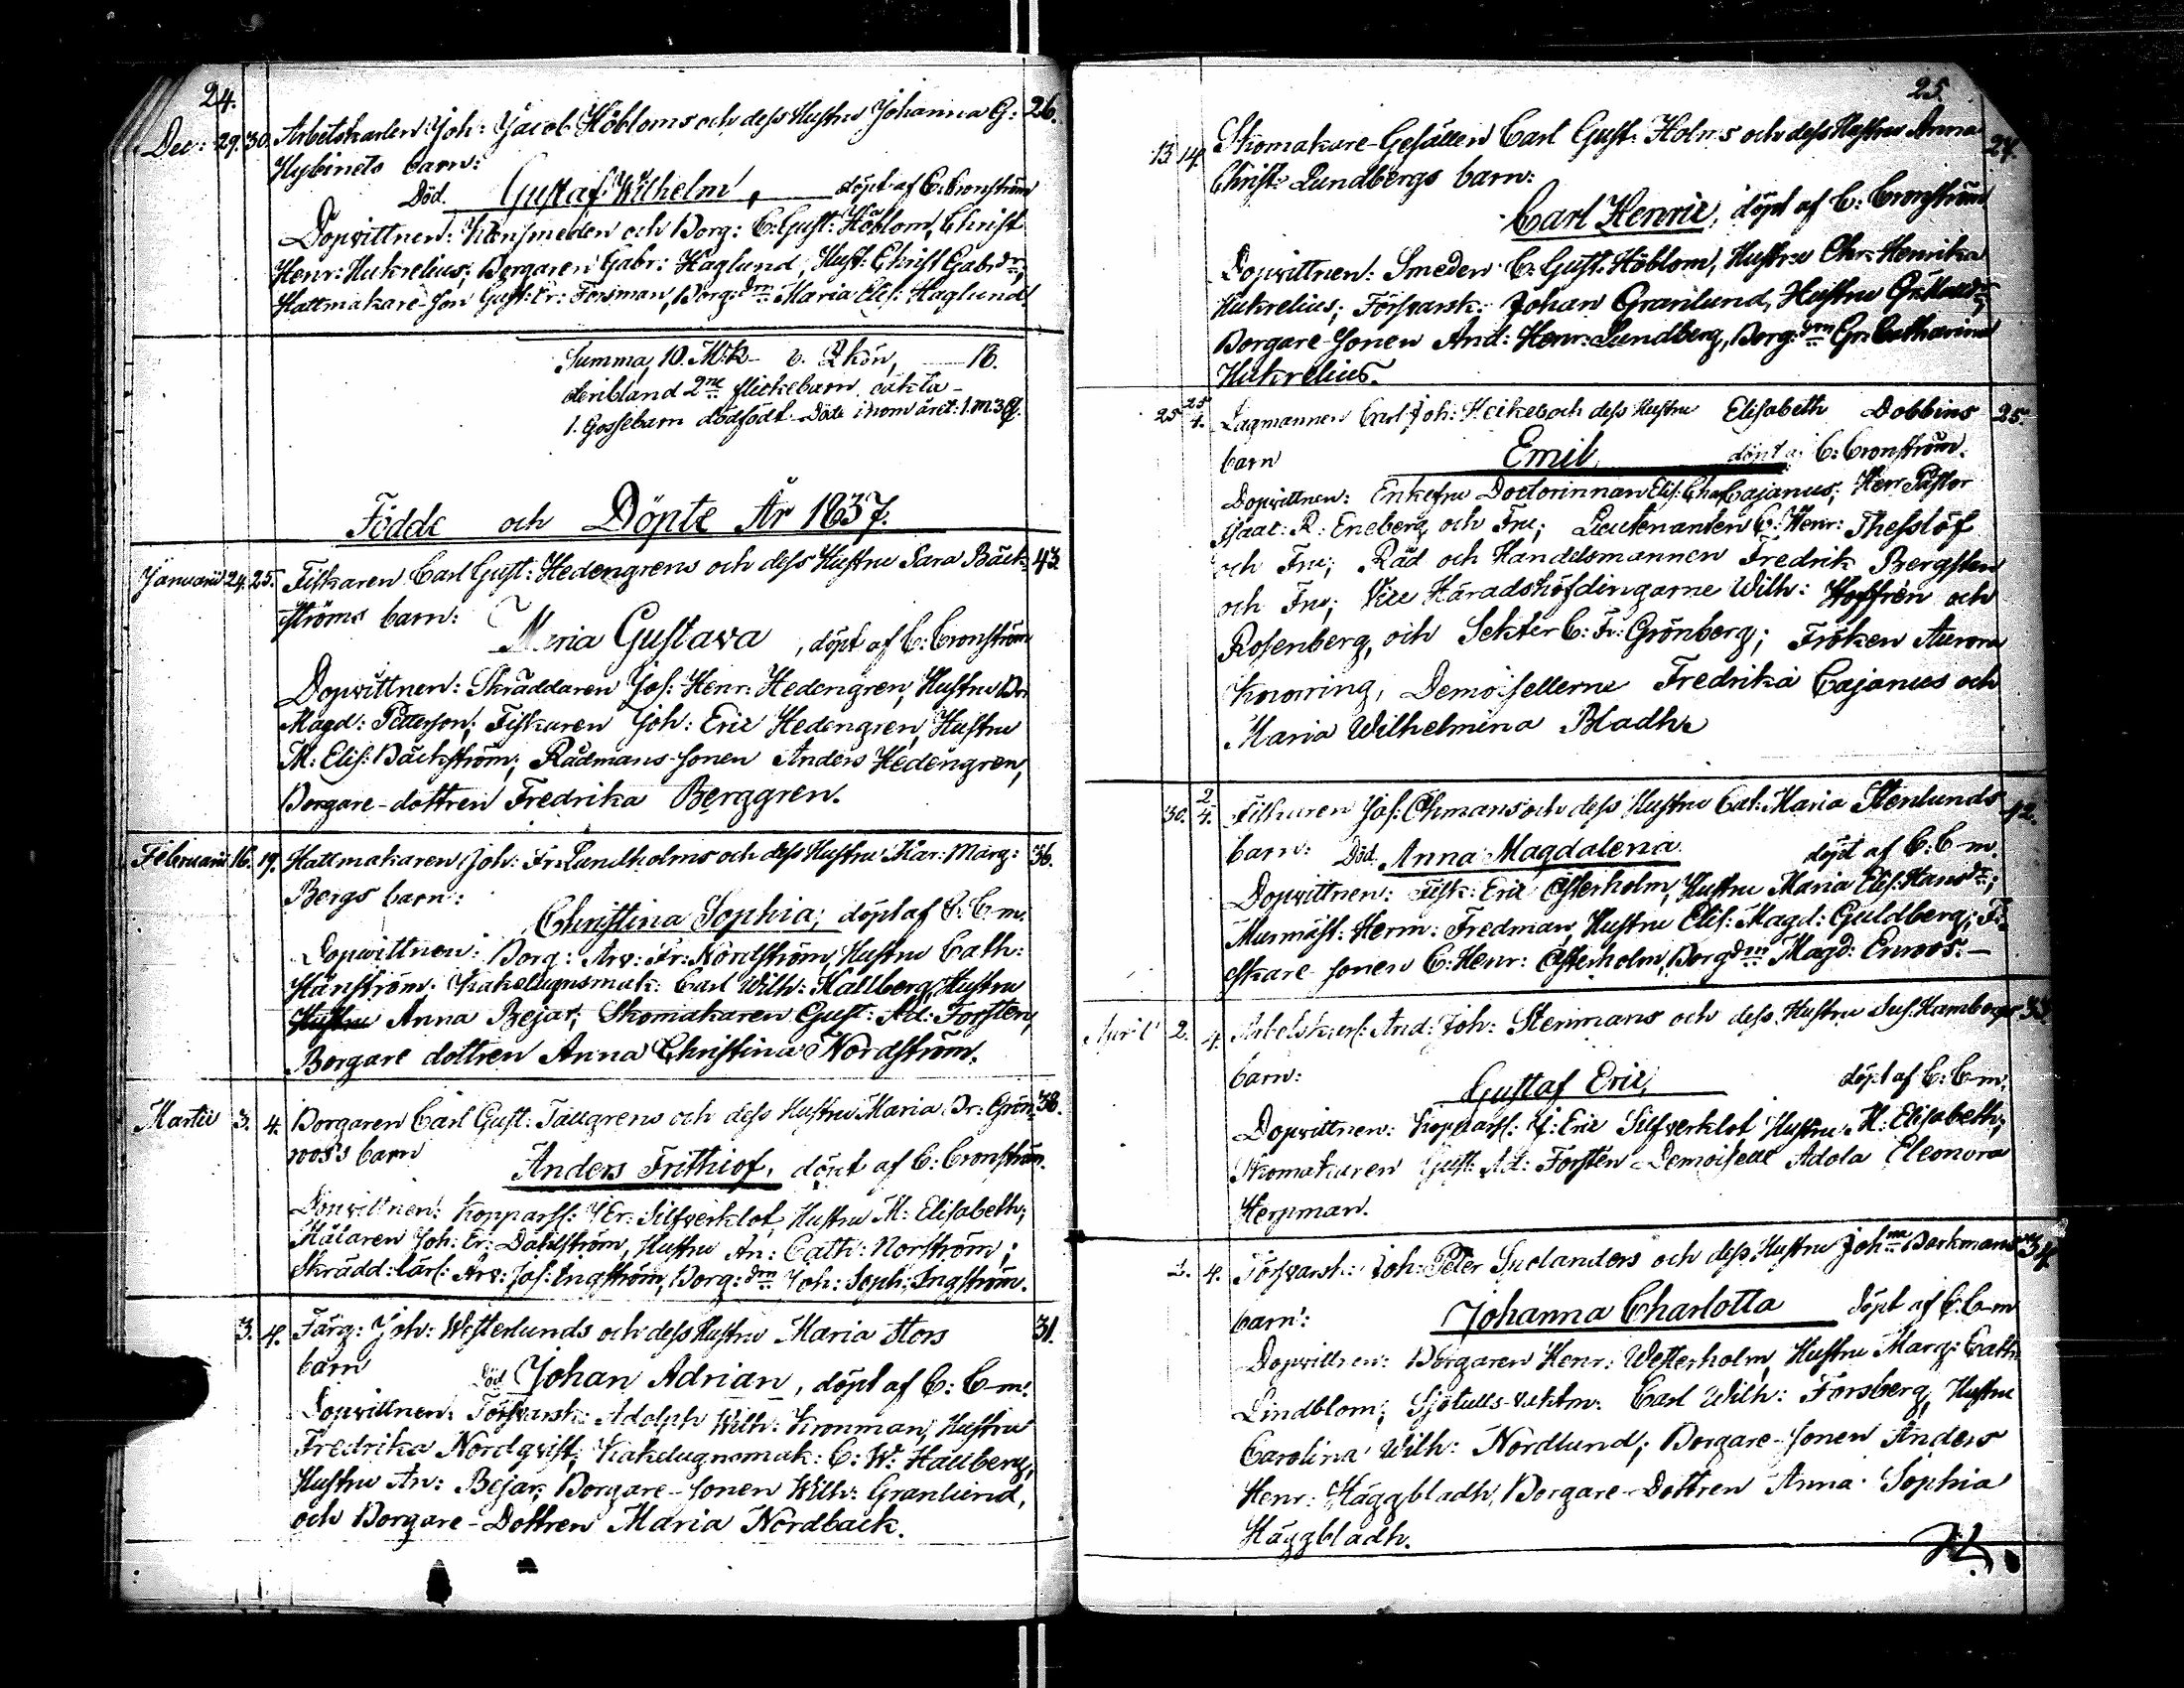 24.
Dec: 29. 30. Arbetskarlen Joh: Jacob Höbloms och dess Hustru Johanna G: 26.
Hybinets barn:
Död. Gustaf Wilhelm, döpt af C: Cronström
Dopvittnen: Klensmeden och Borg: C: Gust: Höblom, Christ
Henr: Hukrelius; Borgaren Gabr: Haglund, Hust: Christ Gabr dr;
Hattmakare-son Gust: Er: Forsman, Borg: drn Maria Elis: Haglund.
Summa, 10. M:k o. Q kön, 18.
deribland 2ne flickebarn oäkta
1. Gossebarn dödfödt. Döde inom året: 1. m. 3 Q.
Födde och Döpte År 1837.
Januarii 24. 25. Fiskaren Carl Gust: Hedengrens och dess Hustru Sara Bäck- 43.
ströms barn:
Maria Gustava, döpt af C: Cronström
Dopvittnen: Skräddaren Jos: Henr: Hedengren, Hustru Br:
Magd: Petterson; Fiskaren Joh: Eric Hedengren, Hustru
M: Elis: Bäckström; Rådmans-sonen Anders Hedengren,
Borgare-dottren Fredrika Berggren.
Februarii 16. 19. Hattmakaren Joh: Fr: Lundholms och dess Hustru Kar: Marg: 36.
Bergs barn:
Christina Sophia, döpt af C: C-m.
Dopvittnen: Borg: Arv: Fr: Nordström, Hustru Cath:
Hänström; Kakelugnsmak: Carl Wilh: Hallberg, Hustru
Hustru Anna Bejar; Skomakaren Gust: Ad: Forsten,
Borgare dottren Anna Christina Nordström.
Martii 3. 4. Borgaren Carl Gust: Tallgrens och dess Hustru Maria Br: Grön- 38.
roos's barn
Anders Frithiof, döpt af C: Cronström.
Dopvittnen: Kopparsl: J Er: Silfverklot, Hustru M: Elisabeth;
Målaren Joh: Er: Dahlström, Hustru An: Cath: Norström;
Skrädd: lärl: Arv: Jos: Engström, Borg: drn Joh: Soph: Engström.
3. 4. Färg: Joh: Westerlunds och dess Hustru Maria Stors 31.
barn
Död Johan Adrian, döpt af C: C-m.
Dopvittnen: Försvarsk: Adolph Wilh: Kronman, Hustru
Fredrika Nordqvist; Kakelugnsmak: C: W: Hallberg,
Hustru An: Bejar; Borgare-sonen Wilh: Granlund,
och Borgare-Dottren Maria Nordback.
25.
13 14. Skomakare-Gesällen Carl Gust: Holms och dess Hustru Anna 27.
Christ: Lundbergs barn:
Carl Henric, döpt af C: Cronström
Dopvittnen: Smeden C: Gust: Höblom, Hustru Chr: Henrika
Hukrelius; Försvarsk: Johan Granlund, Hustru
Borgare-sonen And: Henr: Lundberg, Borg: drn Gr: Catharina
Hukrelius.
25 25/4. Lagmannen Carl Joh: Heikels och dess Hustru Elisabeth Dobbins 25.
barn Emil döpt af C: Cronström.
Dopvittnen: Enkefru Doctorinnan Elis: Char Cajanus; Herr Pastor
Isaac: R: Eneberg och Fru; Lieutenanten C: Henr: Thesslöf
och Fru; Råd och Handelsmannen Fredrik Bergsten
och Fru; Vice Häradshöfdingarne Wilh: Hoffrén och
Rosenberg, och Sekter C: Fr: Grönberg; Fröken Aurora
Knorring, Demoisellerne Fredrika Cajanus och
Maria Wilhelmina Bladh.
30. 2/4. Fiskaren Jos: Öhmans och dess Hustru Cat: Maria Stenlunds 42.
barn: Död. Anna Magdalena döpt af C: C-m.
Dopvittnen: Fisk: Eric Österholm, Hustru Maria Elis: Hans dr;
Murmäst: Herm: Fredman, Hustru Elis: Magd: Guldberg; Fi-
skare-sonen C: Henr: Österholm, Borg drn Magd: Enroos.
April 2. 4. Arbetskarl: And: Joh: Stenmans och dess Hustru Sus: Hambergs 33.
barn:
Gustaf Eric, döpt af C: C-m.
Dopvittnen: Kopparsl: J: Eric Silfverklot Hustru M: Elisabeth;
Skomakaren Gust: Ad: Forsten Demoiselle Adola Eleonora
Herpman.
2. 4. Försvarsk: Joh: Peter Snolanders och dess Hustru Joh na Backmans 34.
barn:
Johanna Charlotta döpt af C: C-m
Dopvittnen: Borgaren Henr: Westerholm, Hustru Marg: Cath:
Lindblom; Sjötulls-vaktm: Carl Wilh: Forsberg, Hustru
Carolina Wilh: Nordlund; Borgare-sonen Anders
Henr: Häggbladh, Borgare-Dottren Anna Sophia
Häggbladh.